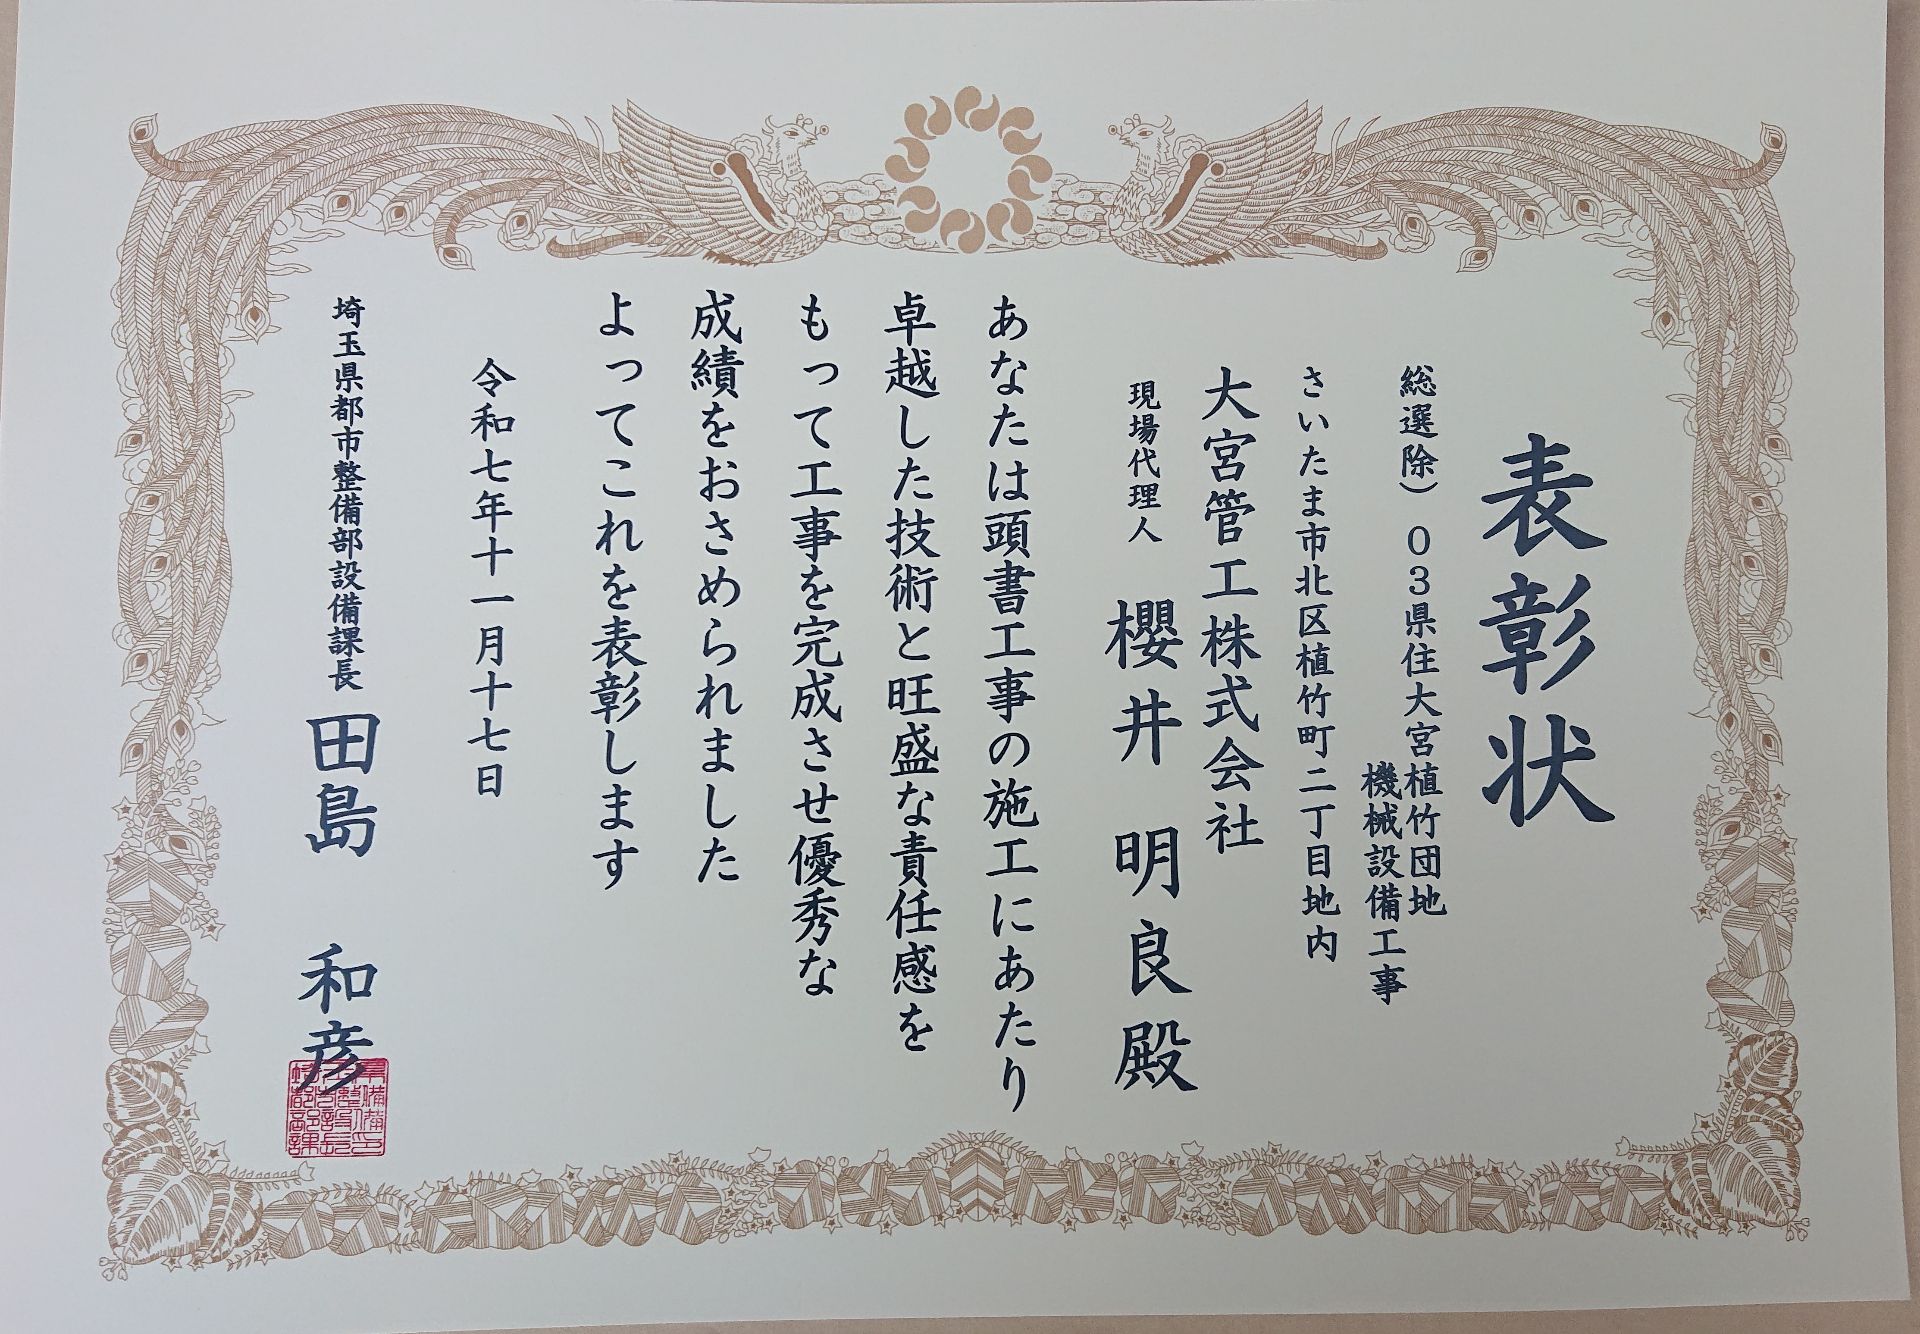 表彰状
総選除）０３県住大宮植竹団地
機械設備工事
さいたま市北区植竹町二丁目地内
大宮管工株式会社
現場代理人　櫻井　明良殿
あなたは頭書工事の施工にあたり
卓越した技術と旺盛な責任感を
もって工事を完成させ優秀な
成績をおさめられました
よってこれを表彰します
令和七年十一月十七日
埼玉県都市整備部設備課長　田島　和彦